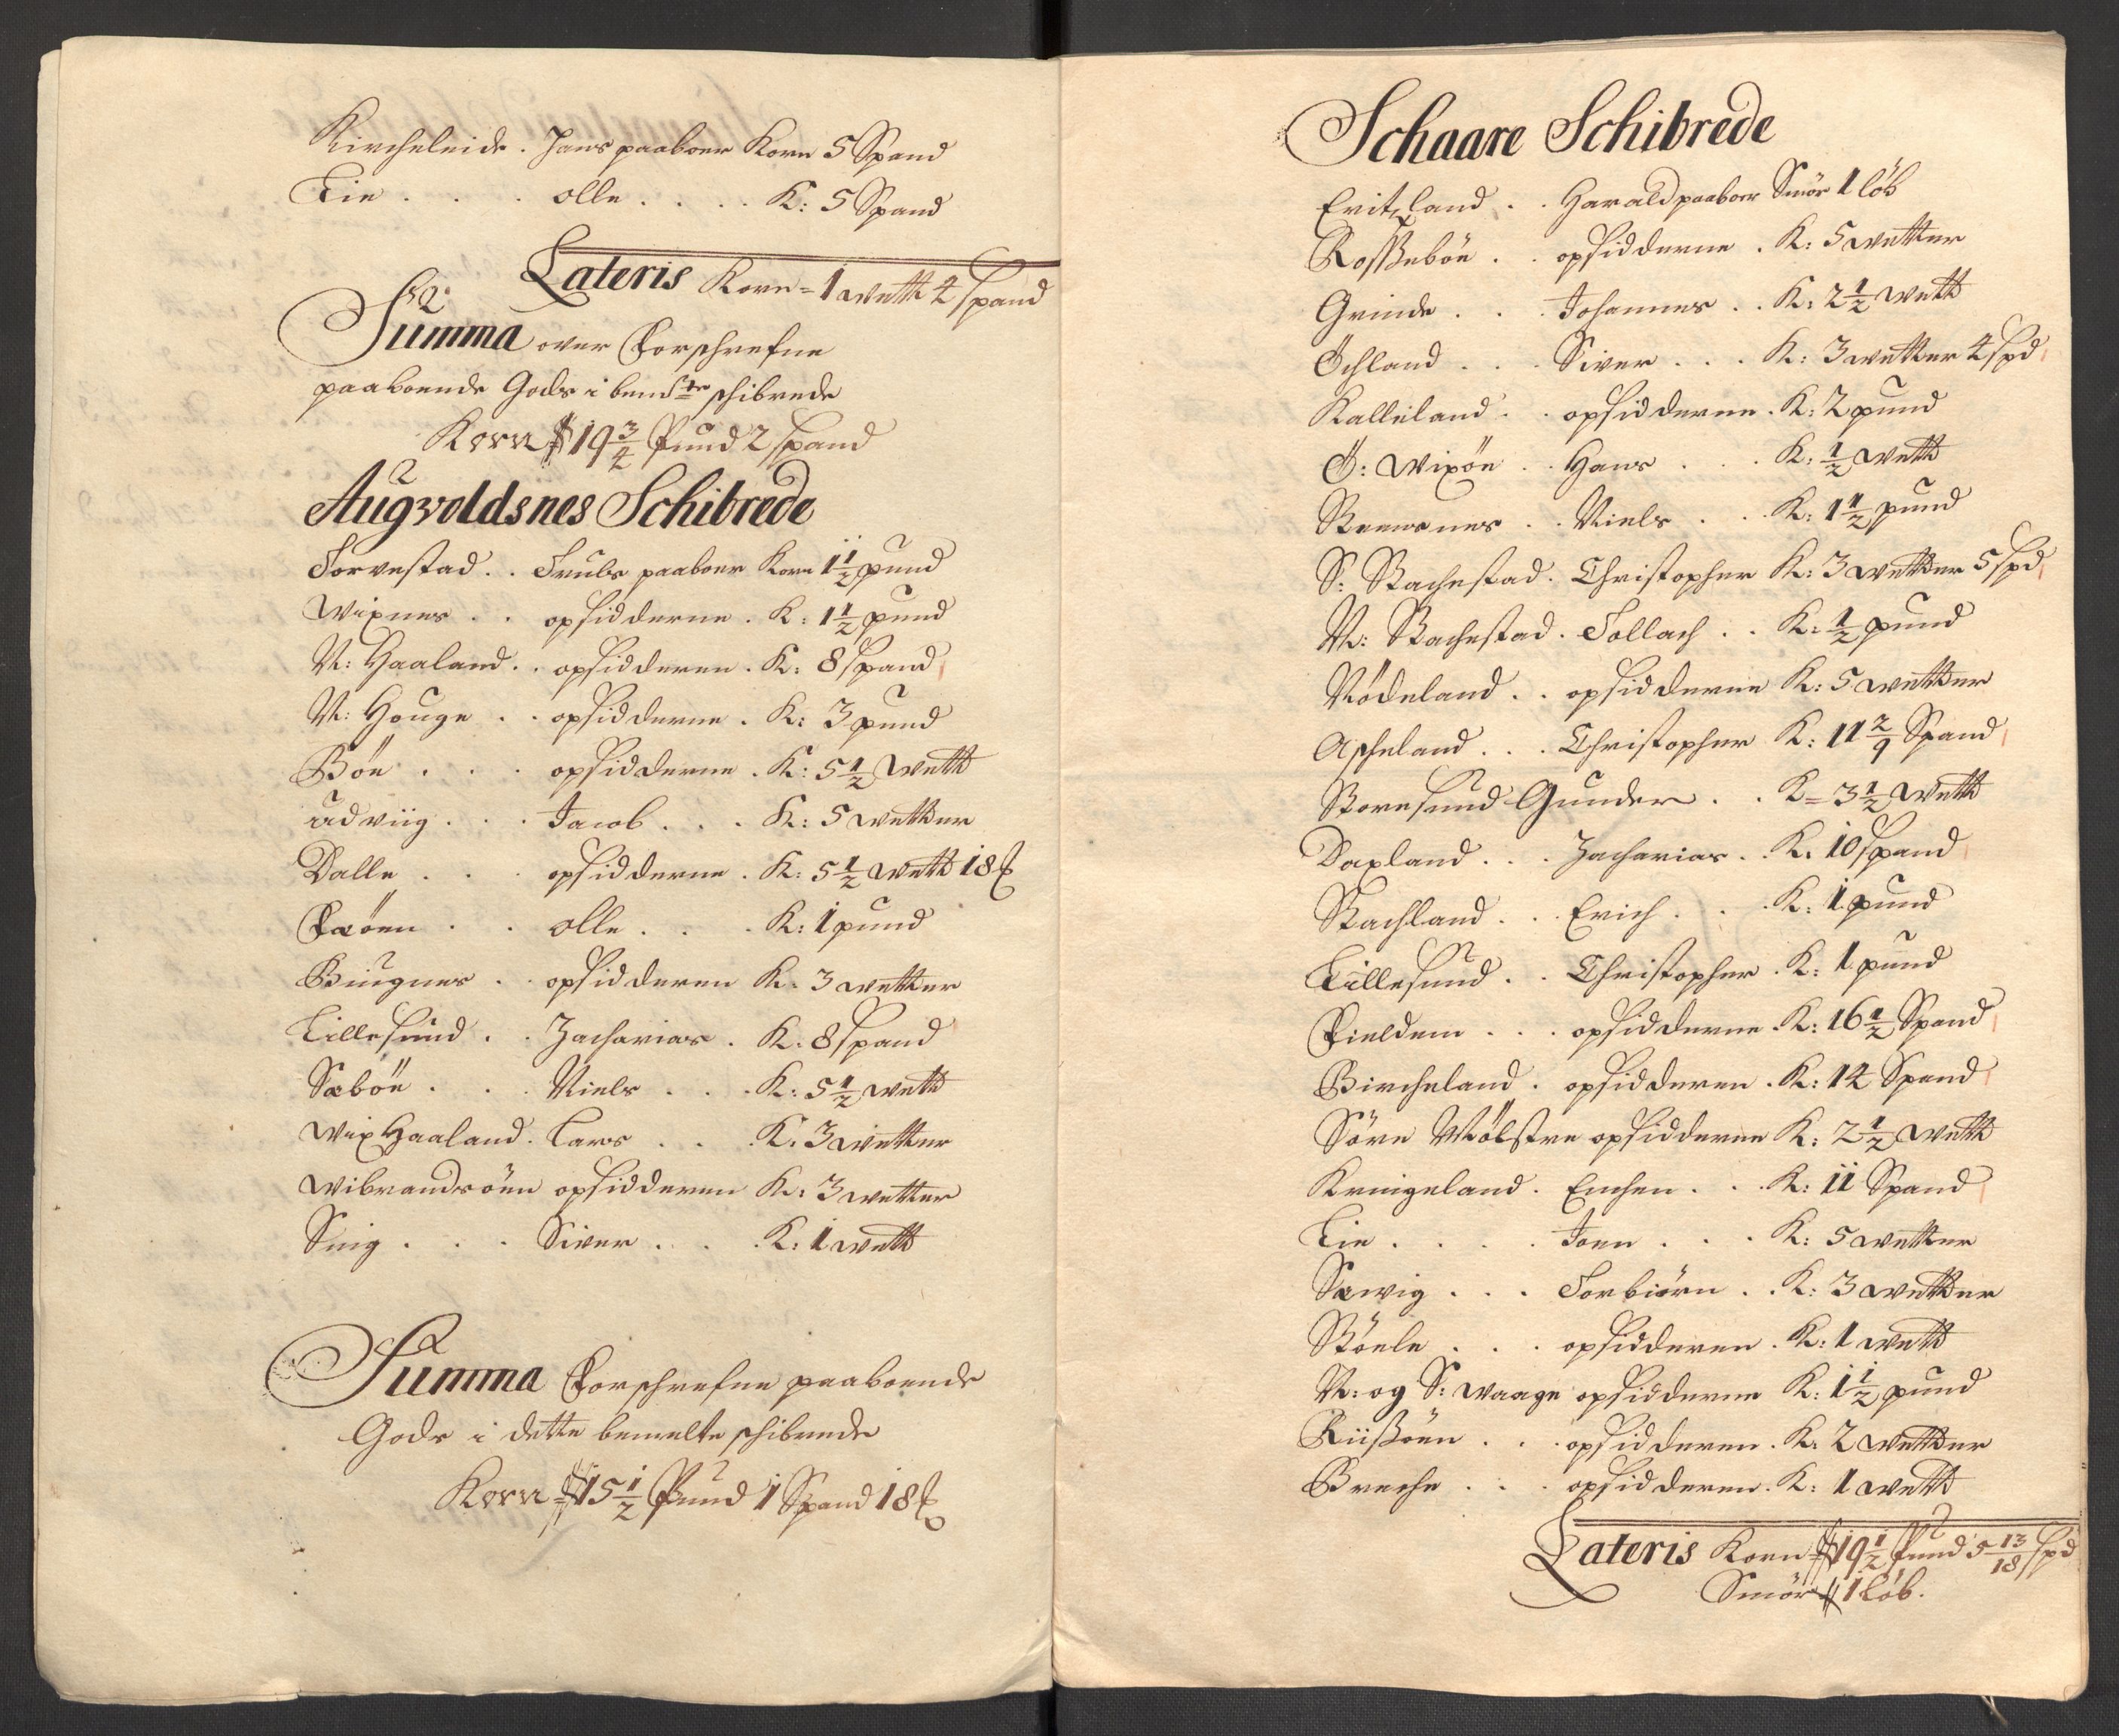 Kircheleide . Jens paaboer Korn 5 Spand
Lie . . . olle . . . . K: 5 Spand
Lateris Korn = 1 wett 4 spand
Summa over Forschrefne
paaboende Gods i bemdte schibrede
Korn 19 3/4 Pund 2 spand
Augvoldsnes Schibrede
Torvestad . . Truls paaboer Korn 1 1/2 pund
Wixnes . . opsidderne . K: 1 1/2 pund
N: Haaland . . opsidderen . K: 8 spand
N: Houge . . opsidderne . K: 3 pund
Böe . . . opsidderne . K: 5 1/2 wett
udviig . . . Jacob . . . K: 5 wetter
Dalle . . . opsidderne . K: 5 1/2 wett 18 ℔
Fæöen . . olle . . . K: 1 pund
Biugnes . . opsidderen K: 3 wetter
Lillesund . . Zacharias . K: 8 spand
Sæböe . . . Niels . . . K: 5 1/2 wett
Wix Haaland . Lars . . K: 3 wetter
Wibrandsöen opsidderen K: 3 wetter
Snig . . . Siver . . . K: 1 wett
Summa Forschrefne paaboende
Gods i dette bemelte schibrede
Korn 15 1/2 Pund 1 Spand 18 ℔
Schaare Schibrede
Eritzland . . Harald paaboer Smör 1 löb
Rosseböe . . opsidderne . K: 5 wetter
Grinde . . . Johannes . . K: 2 1/2 wett
Öchland . . . Siver . . . K: 3 wetter 4 spd
Kalleland . . opsidderne . K: 2 pund
Ö: Wixöe . . Hans . . . K: 1/2 wett
Remsnes . . Niels . . . K: 1 1/2 pund
S: Skachestad . Christopher K: 3 wetter 5 spd
N: Skachestad . Tollach . . K: 1/2 pund
Nödeland . . opsidderne K: 5 wetter
Ascheland . . . Christopher K: 11 2/9 Spand
Storesund Gunder . . K = 3 1/2 wett
Saxland . . . Zacharias . . K: 10 spand
Stachland . . Erich . . . K: 1 pund
Lillesund . . Christopher . K: 1 pund
Fieldem . . . opsidderne . K: 16 1/2 Spand
Bircheland . opsidderen . K: 14 Spand
Söre Mölstre opsidderne K: 2 1/2 wett
Kringeland . Enchen . . K: 11 Spand
Lie . . . . Joen . . . K: 5 wetter
Sæwig . . . Torbiörn . . K: 3 wetter
Stöele . . . opsidderen . K: 1 wett
N: og S: Waage opsidderne K: 1 1/2 pund
Riisöen . . . opsidderen . K: 2 wetter
Breche . . . opsidderen . K: 1 wett
Lateris Korn 19 1/2 Pund 5 13/18 spd
Smör 1 Löb.